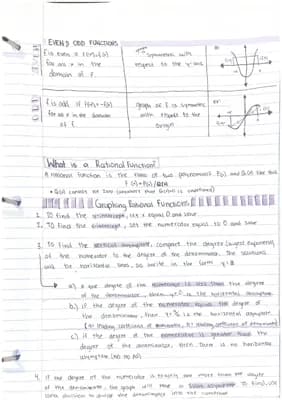 EVEN & ODD FUNCTIONS
f is even if f(-x)=f(x)
for all x in the
domain of f.
symmetric with
respect to the y-axis
f is odd if f(-x)=-f(x)
for all x in the domain
of f
graph of f is symmetric
with respect to the
origin
ex:
What is a Rational Function?
A rational function is the ratio of two polynomials P(x) and Q(x) like this
f(x) = P(x)/Q(x)
Graphing Rational Functions
1. To find the y-intercept, let x equal 0 and solve
2. To find the x-intercept, set the numerator equal to 0 and solve
3. To find the asymptote, compare the degree (largest exponent)
of the numerator to the degree of the denominator. The
will be horizontal lines, so write in the form y = #
a) if the degree of the numerator is less than the degree
of the denominator, then y=0 is the horizontal asymptote
b) if the degree of the numerator equals the degree of
the denominator, then is the horizontal asymptote
c) if the degree of the numerator is greater than the
degree of the denominator, then there is no horizontal
asymptote (no HA)
4. If the degree of the numerator is exactly one more than the degree
of the denominator, the graph will have a slant asymptote. To find, use
long division to divide the denominator into the numerator